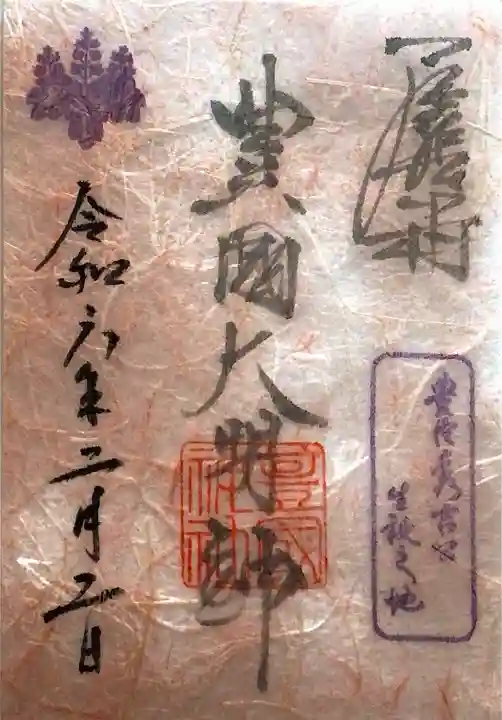 豊臣秀吉公
生誕之地
豊國大明神
豊國
神社
令和六年二月二日